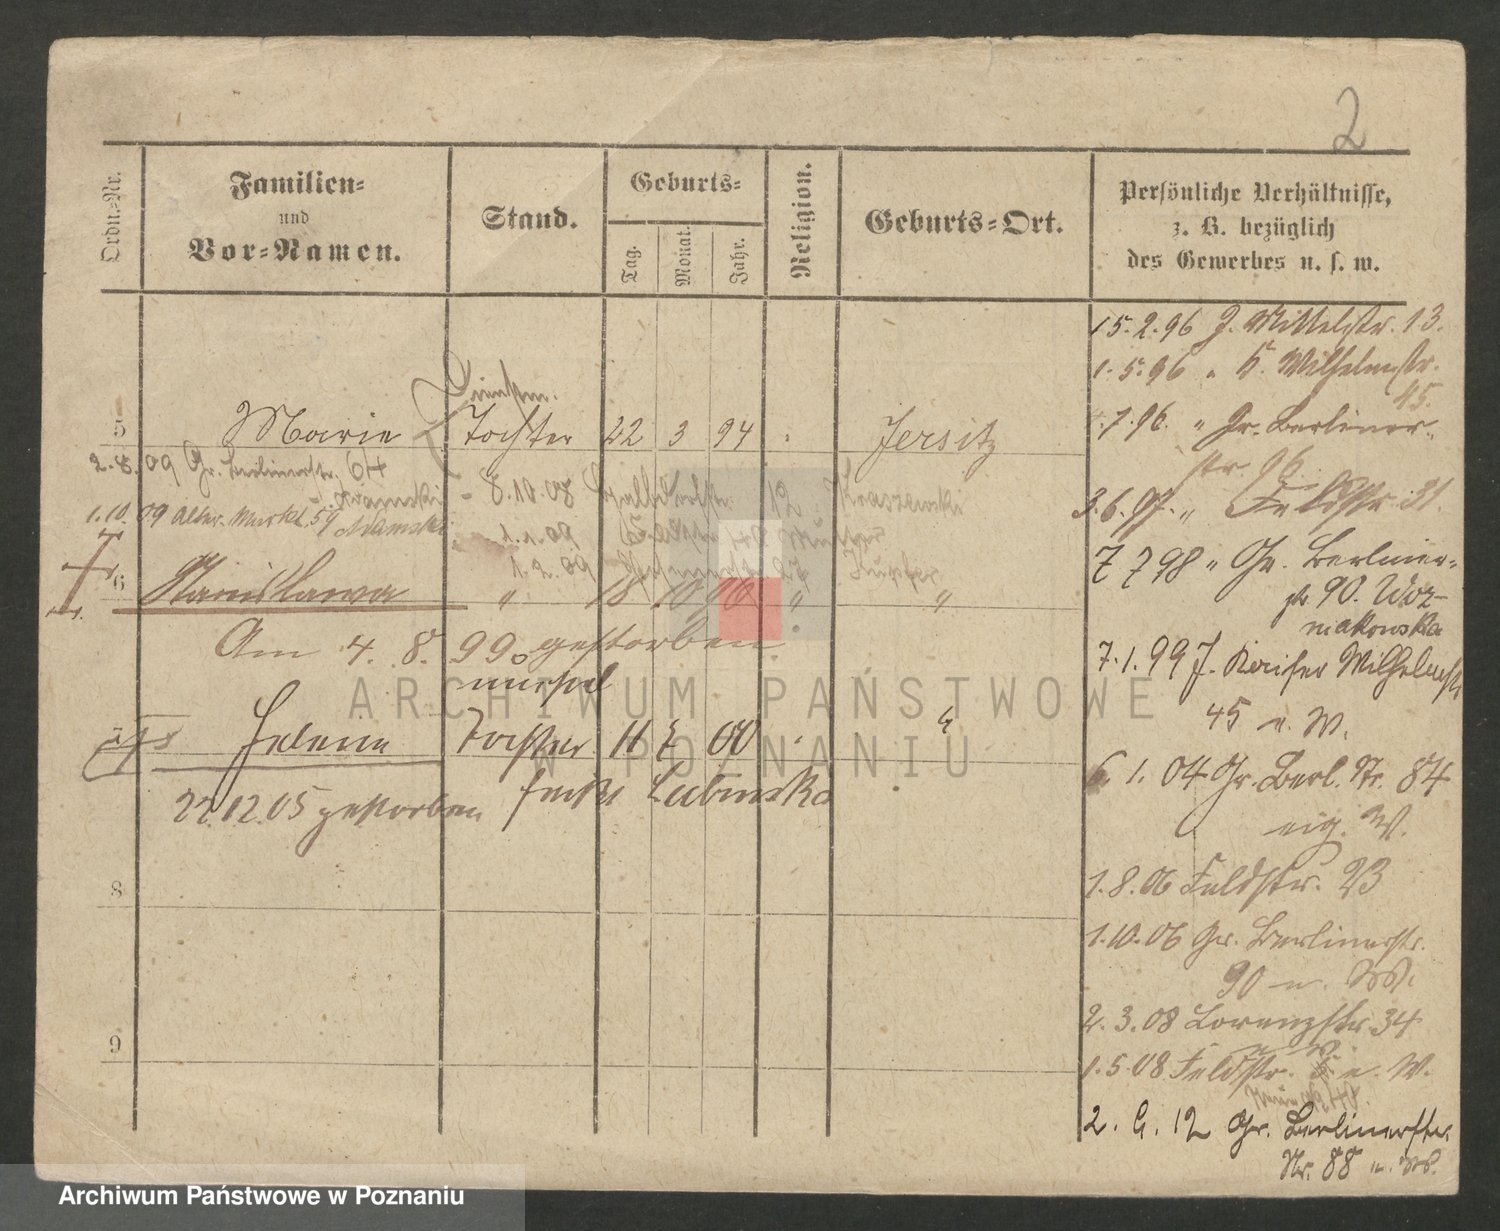 2
Ordn.-Nr.
Familien-
und
Vor-Namen.
Stand.
Geburts-
Tag.
Monat.
Jahr.
Religion.
Geburts-Ort.
Persönliche Verhältnisse,
z. B. bezüglich
des Gewerbes u. s. w.
15.2.96 J. Mittelstr. 13.
1.5.96 " K. Wilhelmstr.
45.
1.7.96. " Gr. Berliner-
str. 96
5 Marie Tochter 22 3 94 " Jersitz
2.8.09 Gr. Berlinerstr. 64
8.10.08
1.10.09 Alter Markt 59
3.6.97. " Feldstr. 31.
1.1.09
1.2.09
6 Stanislawa " 18 10 96 " "
7 7 98 " Gr. Berliner-
str 90. Woz-
niakowska
Am 4. 8. 99 gestorben.
7.1.99 J. Kaiser Wilhelmstr
45 e. W.
7 Helene Tochter 11 7 00 " "
22.12.05 gestorben
Lubinska
6.1.04 Gr. Berl. Str. 84
eig. W.
1.8.06 Feldstr. 23
8
1.10.06 Gr. Berlinerstr.
90 e. W.
2.3.08 Lorenzstr. 34
e W.
9
1.5.08 Feldstr. e. W.
2. 6. 12 Gr. Berlinerstr.
Nr. 88 e. W.
ARCHIWUM PAŃSTWOWE
W POZNANIU
Archiwum Państwowe w Poznaniu